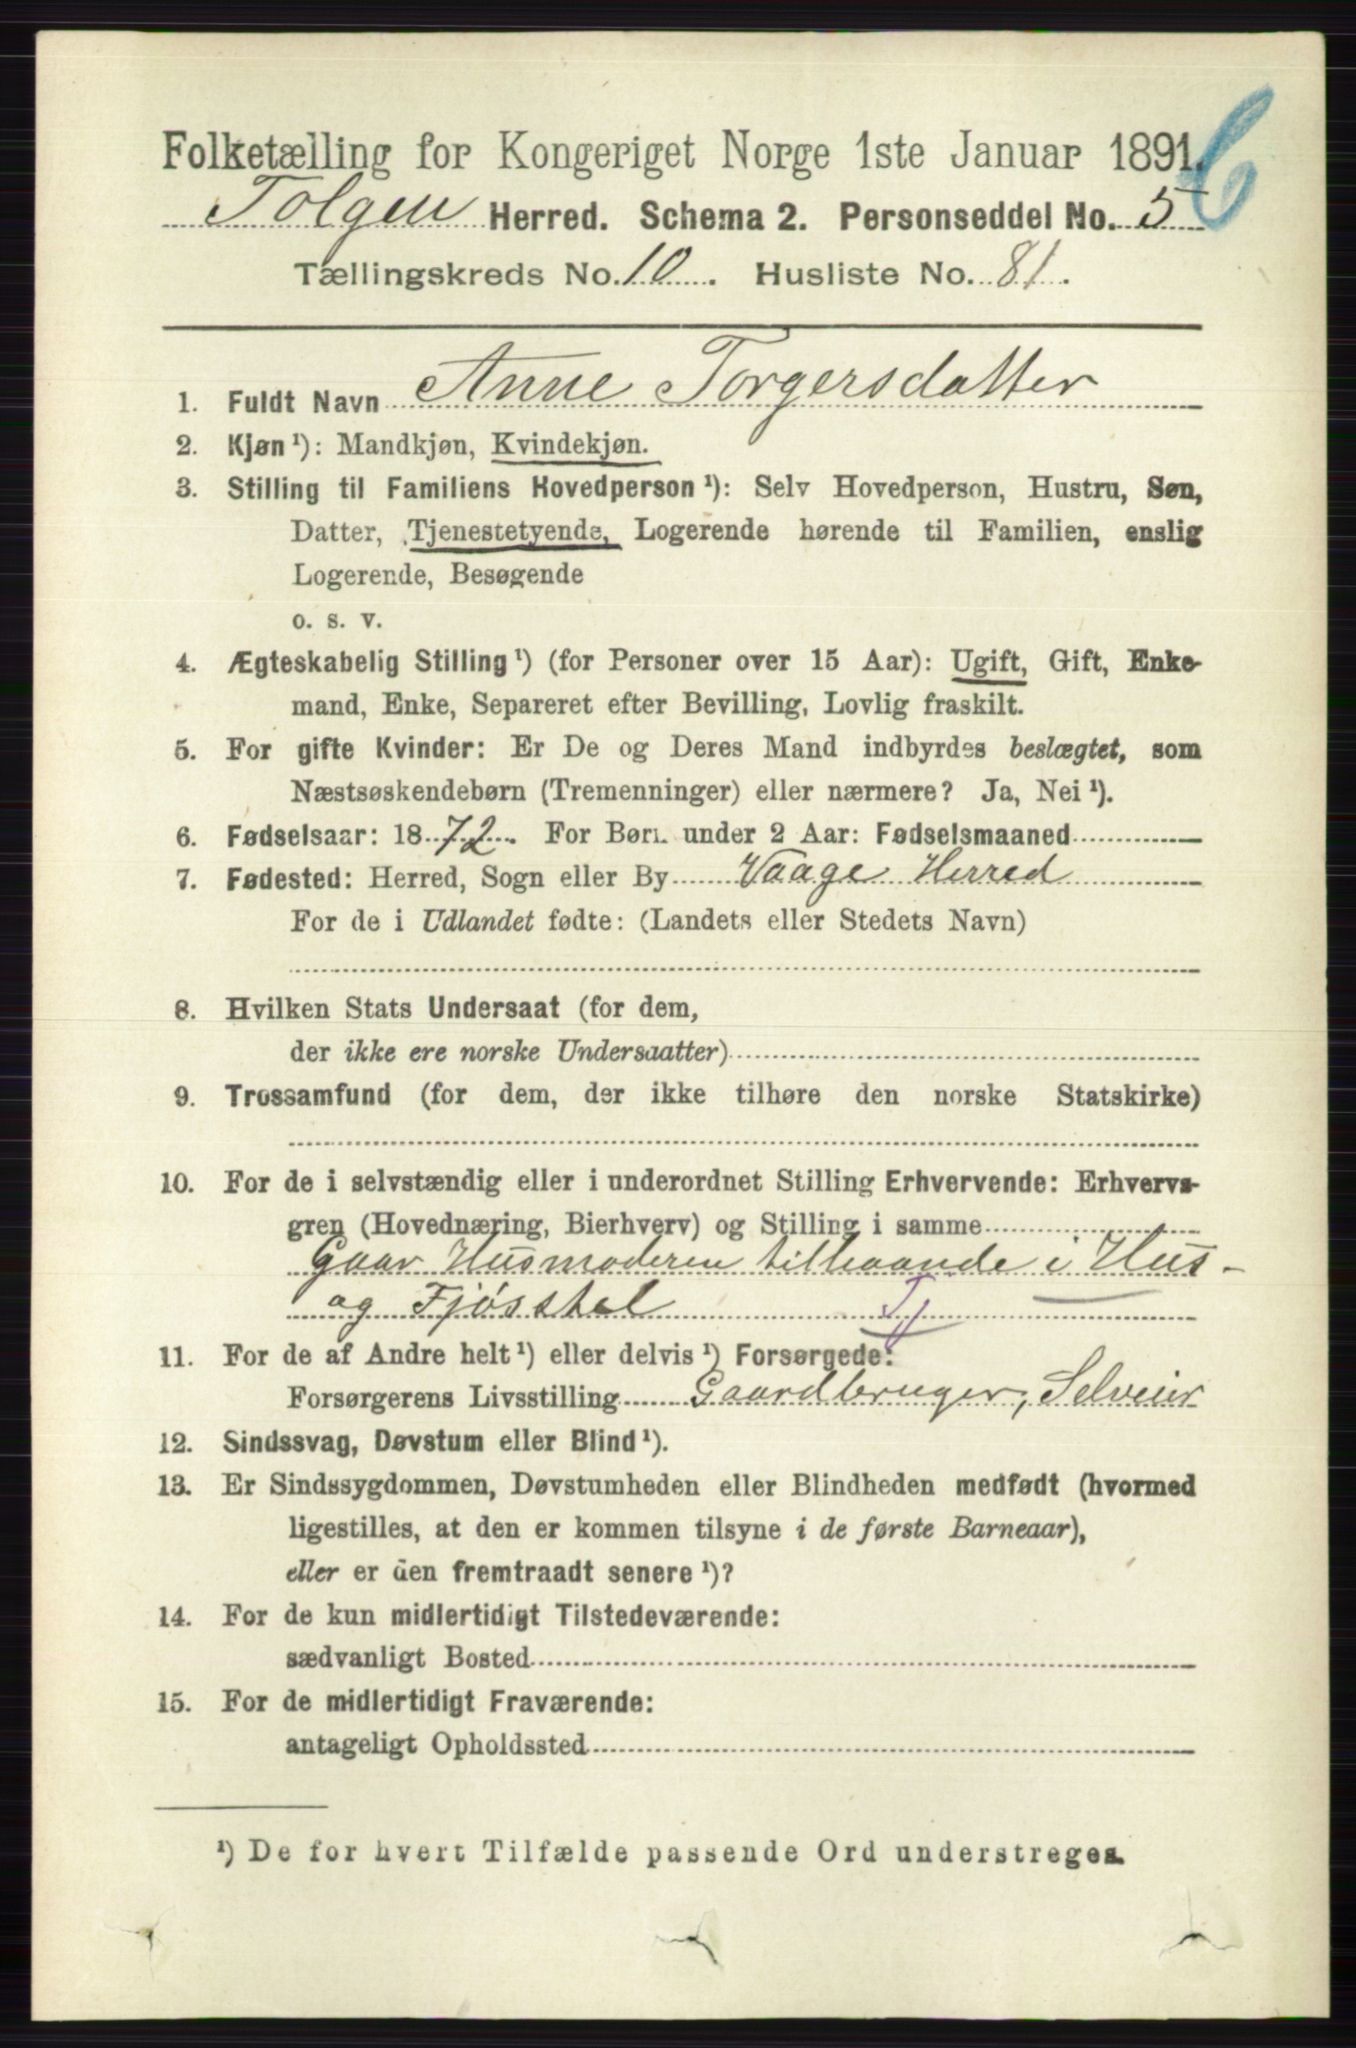 Folketælling for Kongeriget Norge 1ste Januar 1891.
6
Tolgen Herred. Schema 2. Personseddel No. 5
Tællingskreds No. 10. Husliste No. 81.
1. Fuldt Navn Anne Torgersdatter
2. Kjøn¹): Mandkjøn, Kvindekjøn.
3. Stilling til Familiens Hovedperson¹): Selv Hovedperson, Hustru, Søn,
Datter, Tjenestetyende, Logerende hørende til Familien, enslig
Logerende, Besøgende
o. s. v.
4. Ægteskabelig Stilling¹) (for Personer over 15 Aar): Ugift, Gift, Enke-
mand, Enke, Separeret efter Bevilling, Lovlig fraskilt.
5. For gifte Kvinder: Er De og Deres Mand indbyrdes beslægtet, som
Næstsøskendebørn (Tremenninger) eller nærmere? Ja, Nei¹).
6. Fødselsaar: 1872. For Børn under 2 Aar: Fødselsmaaned
7. Fødested: Herred, Sogn eller By Vaage Herred
For de i Udlandet fødte: (Landets eller Stedets Navn)
8. Hvilken Stats Undersaat (for dem,
der ikke ere norske Undersaatter)
9. Trossamfund (for dem, der ikke tilhøre den norske Statskirke)
10. For de i selvstændig eller i underordnet Stilling Erhvervende: Erhvervs-
gren (Hovednæring, Bierhverv) og Stilling i samme
Gaar Husmoderen tilhaande i Hus-
og Fjøsstel Tj
11. For de af Andre helt¹) eller delvis¹) Forsørgede:
Forsørgerens Livsstilling Gaardbruger, Selveier
12. Sindssvag, Døvstum eller Blind¹).
13. Er Sindssygdommen, Døvstumheden eller Blindheden medfødt (hvormed
ligestilles, at den er kommen tilsyne i de første Barneaar),
eller er den fremtraadt senere¹)?
14. For de kun midlertidigt Tilstedeværende:
sædvanligt Bosted
15. For de midlertidigt Fraværende:
antageligt Opholdssted
¹) De for hvert Tilfælde passende Ord understreges.